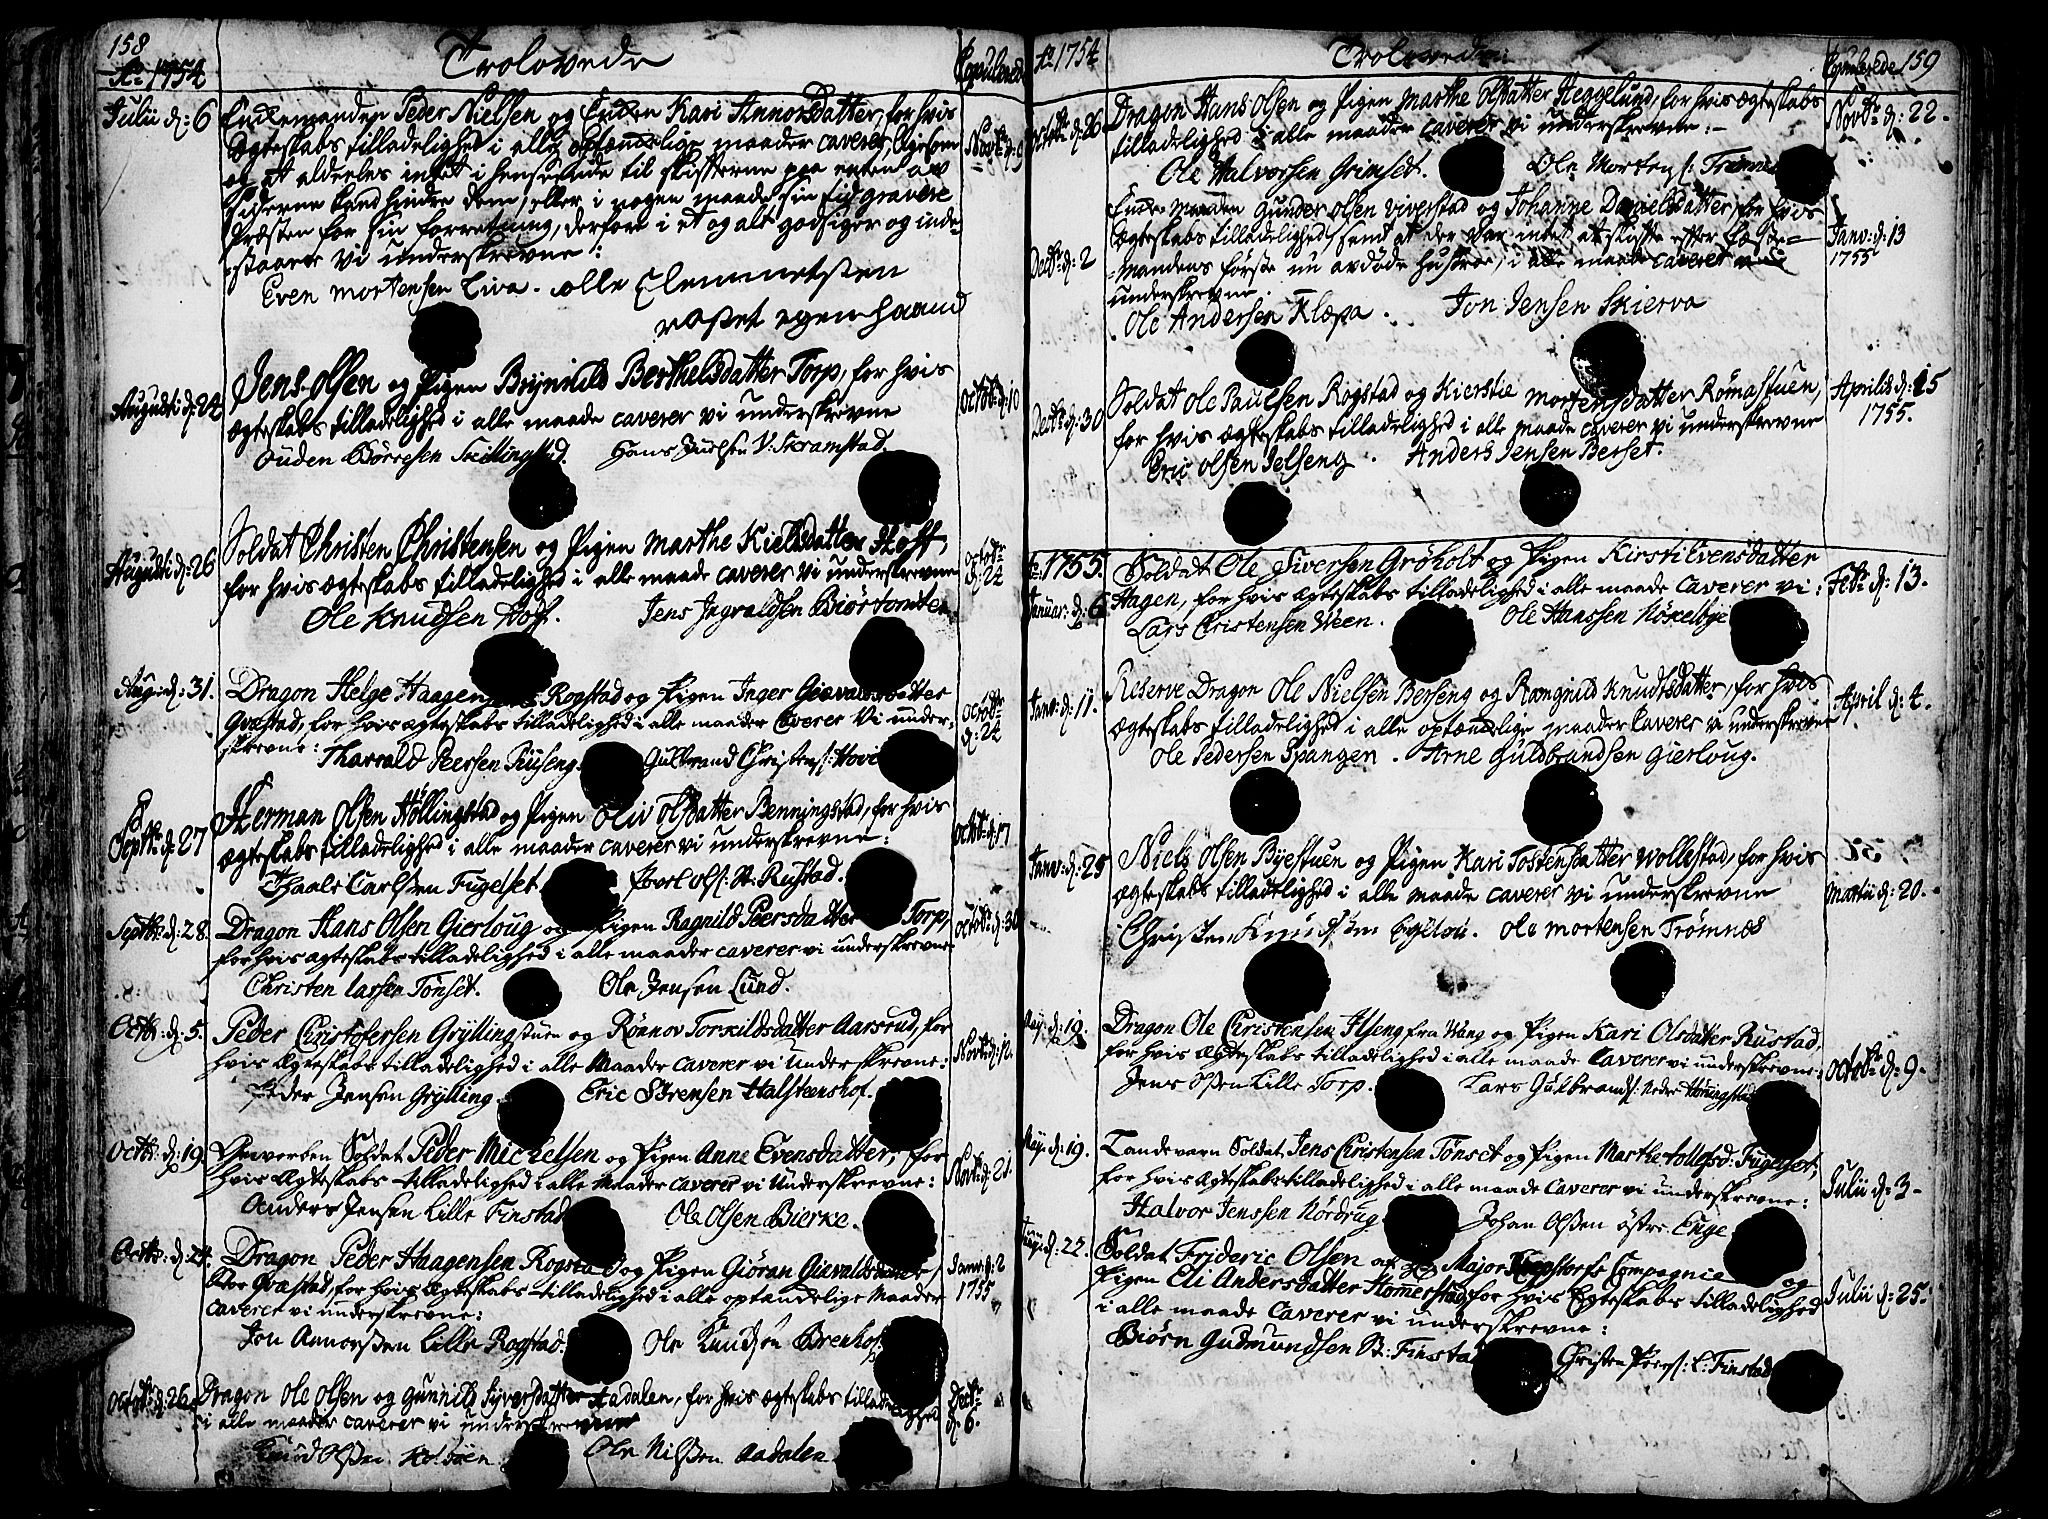 158
Ao 1754 Trolovede Copulerede
Julii d: 6 Enkemanden Peder Nielsen og Enken Kari Annorsdatter, for hvis Novbr: d: 9
Ægteskabs tilladelighed i alle optænkelige maader caverer, ligesom
og at aldeeles intet i henseende til skifterne paa enten av
Siderne kand hindre dem, eller i nogen maade sin tid gravere
Præsten for sin forretning, derfore i et og alt godsiger og inde-
staaer vi underskrevne:
Even Mortensen Liva. olle Clemmetsen
rostet egen haand
Augusti d: 24 Jens Olsen og Pigen Brynnild Berthelsdatter Torp, for hvis Octob: d: 10
Ægteskabs tilladelighed i alle maade caverer vi underskrevne
Ouden Børresen Skillingstad. Hans Juelsen V: Skramstad.
Augusti d: 26 Soldat Christen Christensen og Pigen Marthe Kieldsdatter Hoff, Octobr: d: 24
for hvis ægteskabs tilladelighed i alle maade caverer vi underskrevne
Ole Knudsen Hoff. Jens Ingvaldsen Biørtomten.
Aug: d: 31. Dragon Helge Haagensen Rogstad og Pigen Inger Giavaldsdatter Octobr: d: 24
Qvæstad, for hvis ægteskabs tilladelighed i alle maader Caverer Vi under-
skrevne: Tharald Peersen Kuseng. Gulbrand Christens: Hovi
Septbr: d: 27 Herman Olsen Høllingstad og Pigen Oliv Olsdatter Benningstad, for hvis Octbr: d: 17
Ægteskabs tilladelighed i alle maader caverer vi underskrevne:
Thaale Carlsen Fugelset. Povel Ols: St: Rustad.
Septbr: d: 28. Dragon Hans Olsen Gierloug og Pigen Ragnild Peersdatter Torp, Octobr: d: 30
for hvis ægteskabs tilladelighed i alle maader caverer vi underskrevne
Christen Larsen Tønset. Ole Jensen Lund.
Octbr: d: 5. Peder Christofersen Gryllingstuen og Rønnov Torkildsdatter Aarsrud, for Novbr: d: 12.
hvis Ægteskabs tilladelighed i alle Maader caverer vi Underskrevne:
Peder Jensen Grylling. Eric Størensen Halsteenshof.
Octbr: d: 19. Gevorben Soldat Peder Michelsen og Pigen Anne Evensdatter, for Novbr: d: 21.
hvis Ægteskabs tilladelighed i alle Maader caverer vi Underskrevne:
Anders Jensen Lille Finstad Ole Olsen Bierke.
Octbr: d: 24. Dragon Peder Haagensen Rogstad og Pigen Giøran Giavaldsdatter Janv: d: 2
Qvæstad, for hvis Ægteskabs tilladelighed i alle optænkelige Maader 1755
caverer vi underskrevne:
Jon Annorsen Lille Rogstad. Ole Knudsen Brenhof:
Octobr: d: 26. Dragon Ole Olsen og Gunnild Syversdatter Aadalen, for hvis ægteskabs tilladelighed Decbr: d: 6.
i alle maader caverer vi underskrevne
Knud Olsen Kolbøen Ole Nilssen Aadalen.
Ao 1754 Trolovede: Copulerede 159
Octobr: d: 26 Dragon Hans Olsen og Pigen Marthe Olsdatter Heggelund, for hvis ægteskabs Novbr: d: 22.
tilladelighed i alle maader caverer vi underskrevne:
Ole Halvorsen Grimset. Ole Mortens: Trømnes
Decbr: d: 2 Enke Manden Gunder Olsen Vivestad og Johanne Danielsdatter, for hvis Janv: d: 13
Ægteskabs tilladelighed, samt at der var intet at skifte efter Fæste- 1755
Mandens første nu avdøde Hustrue, i alle maade caverer
underskrevne.
Ole Andersen Klæpa. Jon Jensen Skierva
Decbr: d: 30 Soldat Ole Paulsen Rogstad og Kierstie Mortensdatter Rømastuen, Aprilis d: 15
for hvis Ægteskabs tilladelighed i alle maade caverer vi underskrevne 1755.
Eric Olsen Jelseng. Anders Jensen Berset.
Ao: 1755.
Januar: d: 6 Soldat Ole Siversen Grøholt og Pigen Kirsti Evensdatter
Hagen, for hvis Ægteskabs tilladelighed i alle maade caverer vi: Febr: d: 13.
Lars Christensen Veen. Ole Hanssen Nøkelbye
Janv: d: 11. Reserve Dragon Ole Nielsen Berseng og Ramgnild Knudsdatter, for hvis April d: 4.
ægteskabs tilladelighed i alle optænkelige maader Caverer vi underskrevne
Ole Pedersen Spangen. Arne Guldbrandsen Gierloug.
Janv: d: 25 Niels Olsen Byestuen og Pigen Kari Tostensdatter Wollestad, for hvis
ægteskabs tilladelighed i alle maade caverer vi underskrevne Martii d: 20.
Christen Knudsøn Egelou. Ole Mortensen Trømnes
May: d: 19. Dragon Ole Christensen Ilseng fra Wang og Pigen Kari Olsdatter Rustad,
for hvis Ægteskabs tilladelighed i alle maade Caverer vi underskrevne: Octobr: d: 9.
Jens Olsen Lille Torp. Lars Gulbrands: Nedre Hørningstad
May: d: 19. Landevern Soldat Jens Christensen Tønset og Pigen Marthe Tollefsd: Fugelset,
for hvis ægteskabs tilladelighed i alle maade caverer vi underskrevne: Julii d: 3
Halvor Jenssen Nordrug. Johan Olssen østre Enge
d: 22. Soldat Frideric Olsen af Major Compagnie og
Pigen Eli Andersdatter Homerstad, for hvis Ægteskabs tilladelighed Julii d: 25.
i alle maade caverer vi underskrevne:
Biørn Gudmundsen St: Finstad Christen Peers: L: Finstad